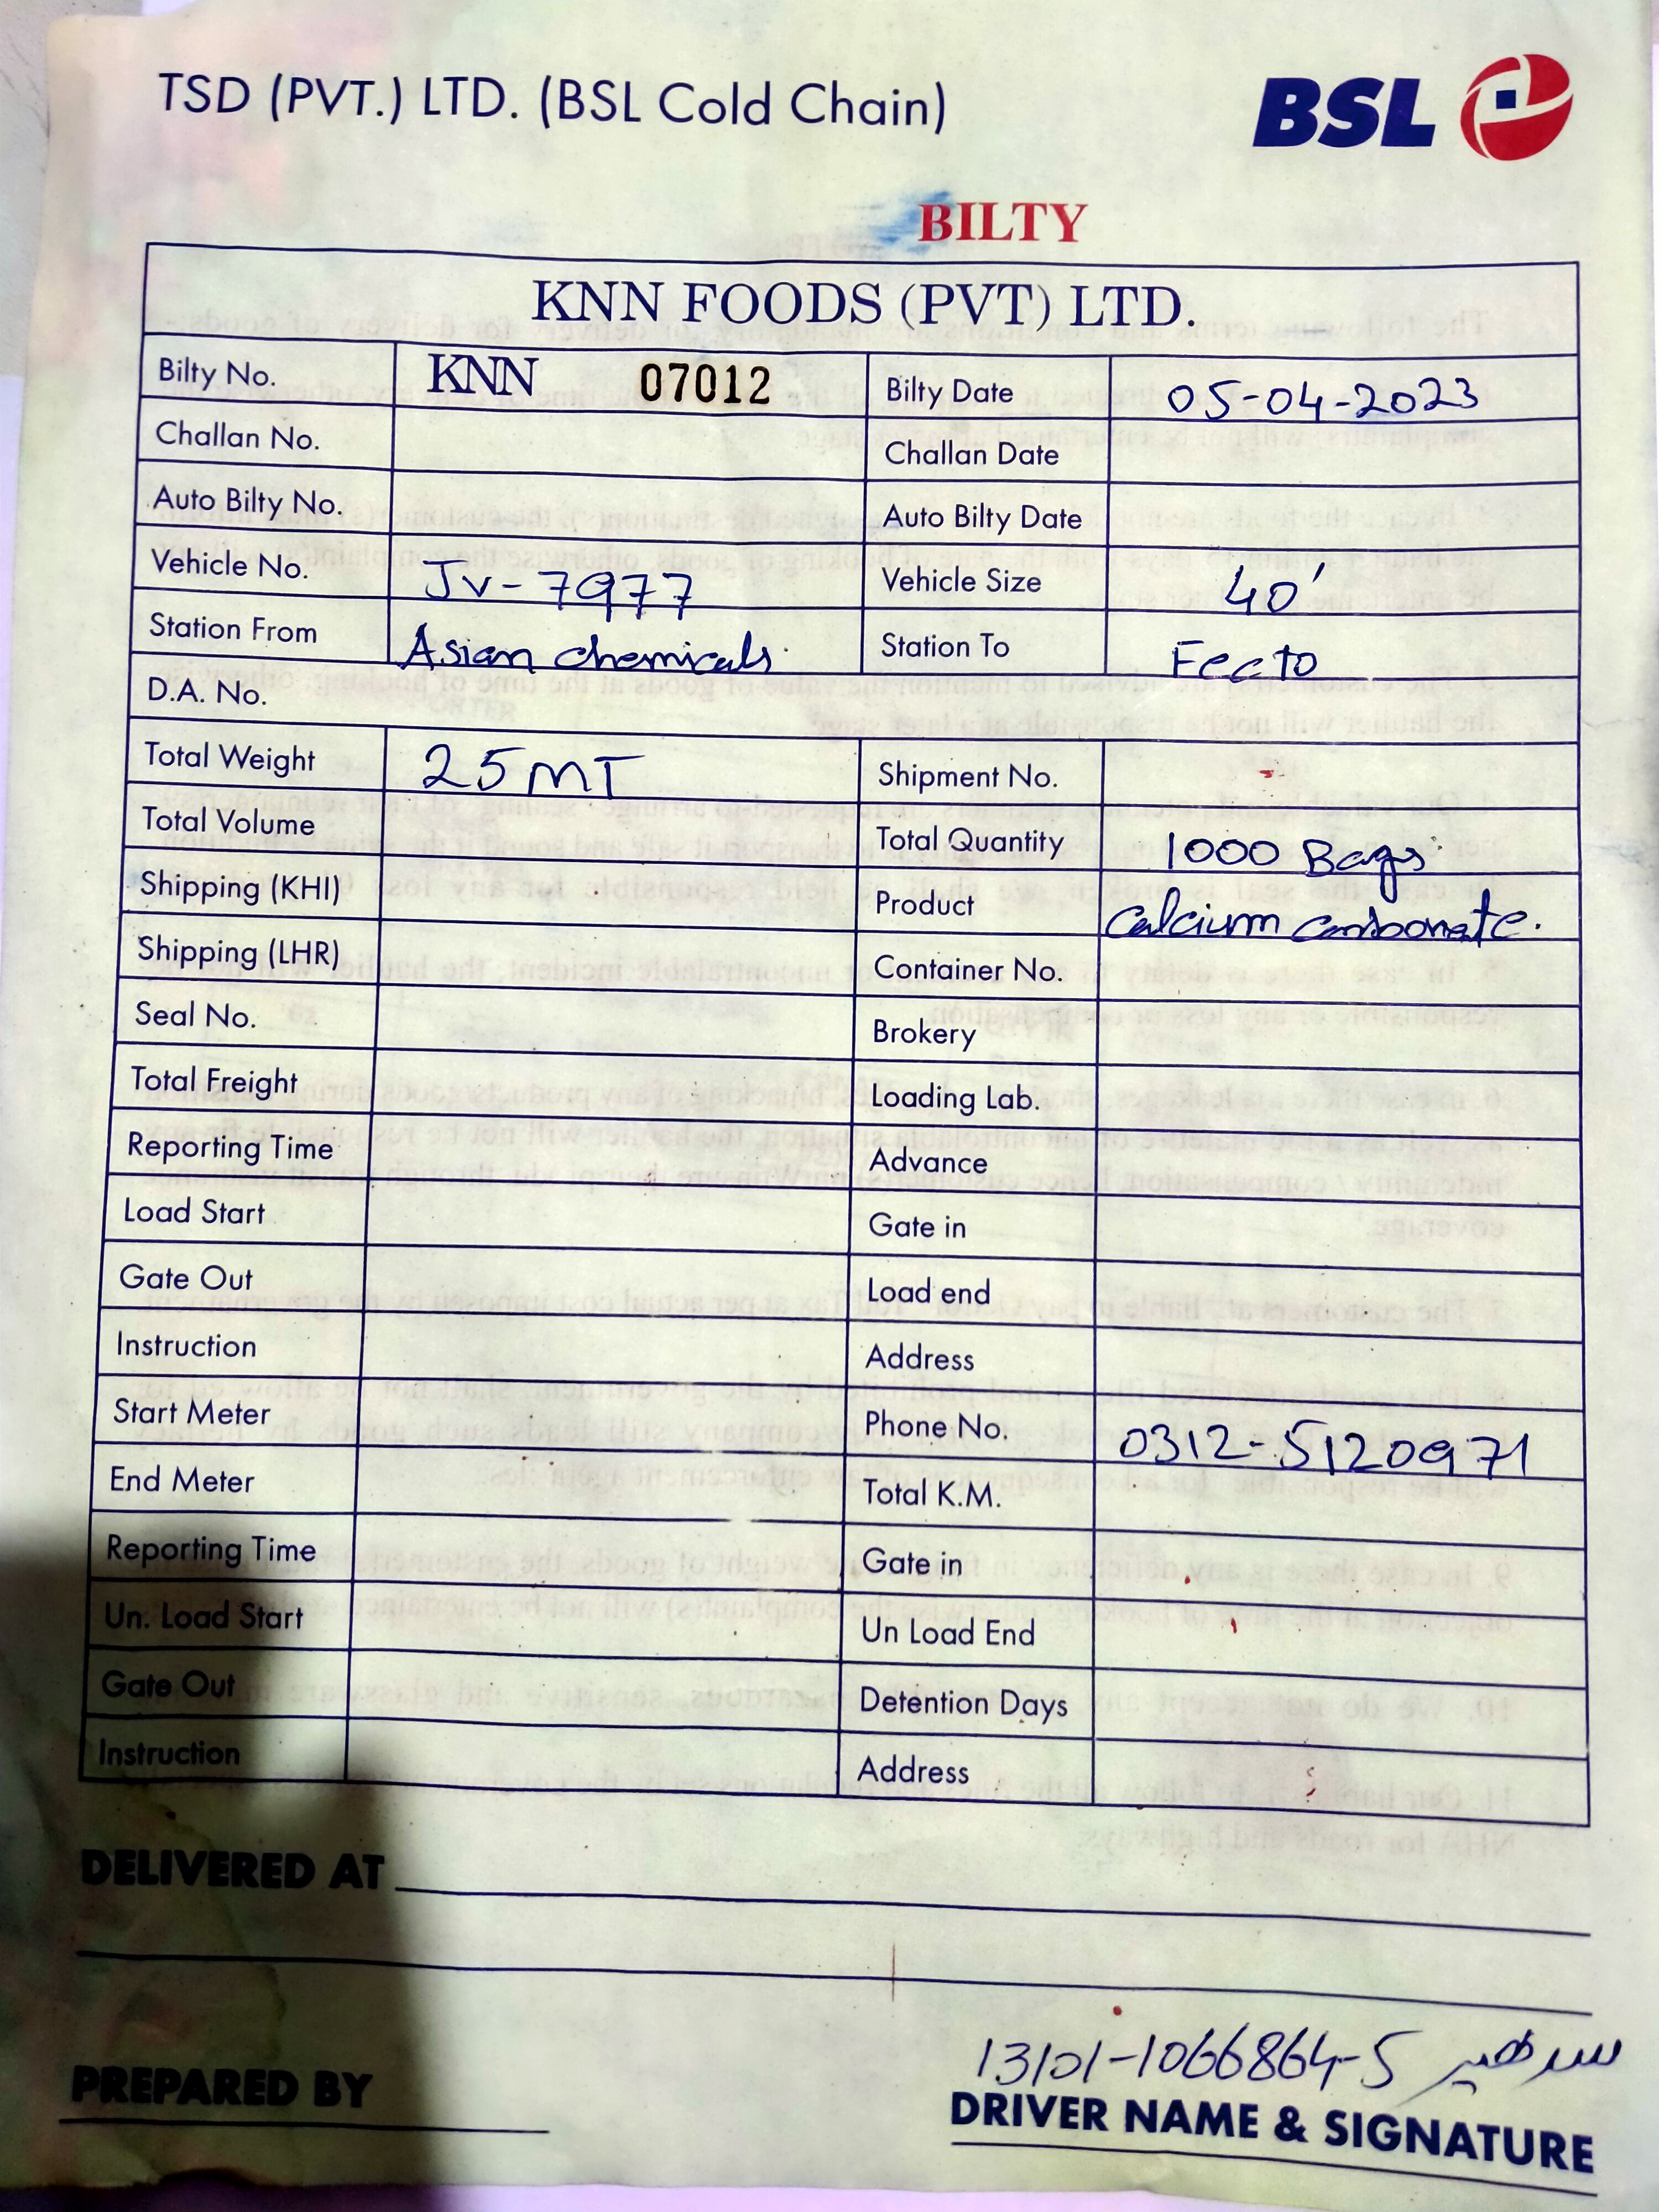 TSD (PVT.) LTD. (BSL Cold Chain)
BSL
BILTY
KNN FOODS (PVT) LTD.
Bilty No. KNN 07012 Bilty Date 05-04-2023
Challan No. Challan Date
Auto Bilty No. Auto Bilty Date
Vehicle No. JV-7977 Vehicle Size 40'
Station From Asian chemicals. Station To Fecto
D.A. No.
Total Weight 25 MT Shipment No.
Total Volume Total Quantity 1000 Bags
Shipping (KHI) Product Calcium carbonate.
Shipping (LHR) Container No.
Seal No. Brokery
Total Freight Loading Lab.
Reporting Time Advance
Load Start Gate in
Gate Out Load end
Instruction Address
Start Meter Phone No. 0312-5120971
End Meter Total K.M.
Reporting Time Gate in
Un. Load Start Un Load End
Gate Out Detention Days
Instruction Address
DELIVERED AT
13101-1066864-5
PREPARED BY
DRIVER NAME & SIGNATURE